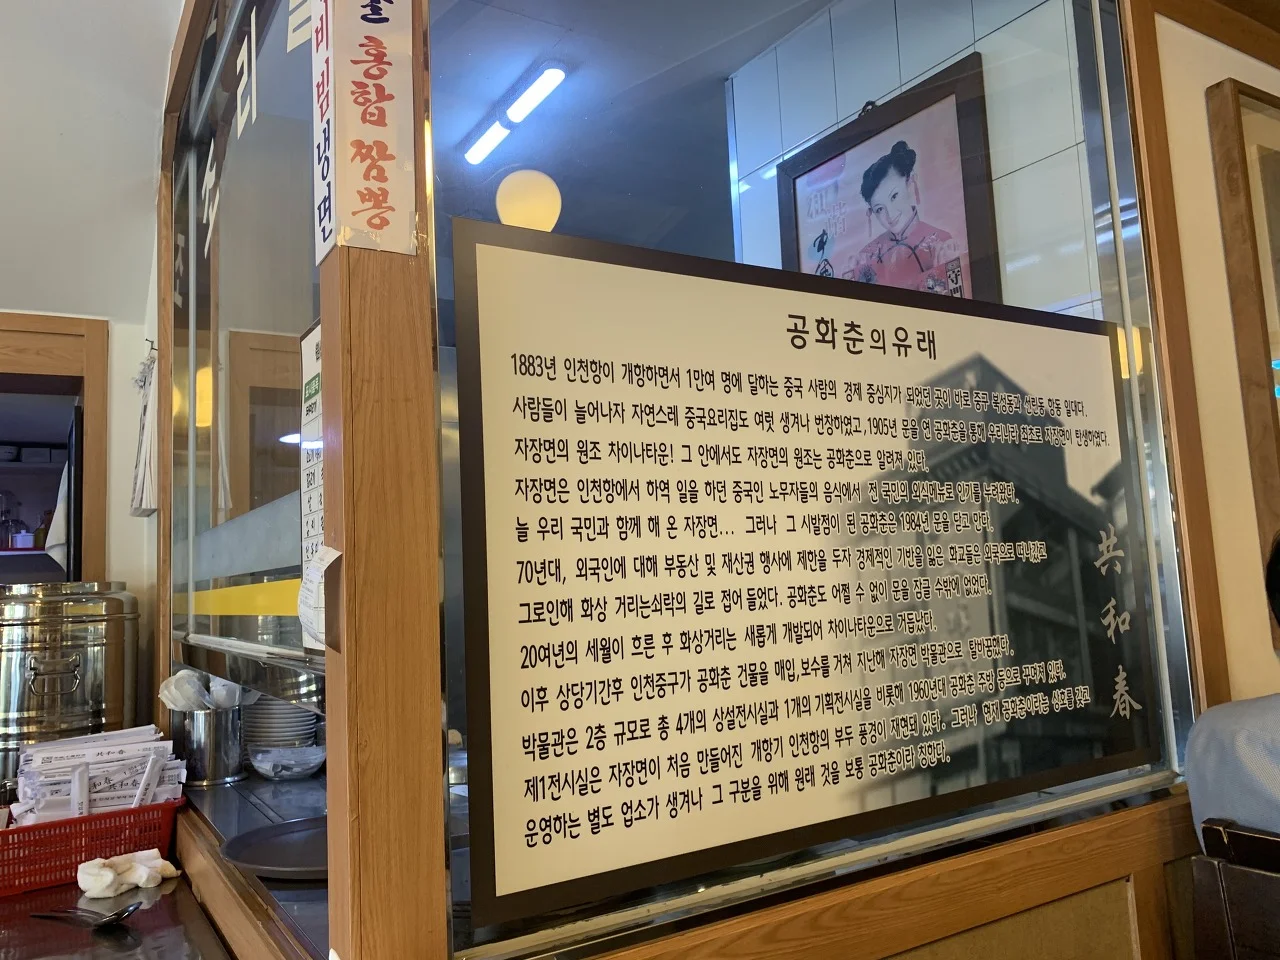 비빔냉면
홍합짬뽕
조리
공화춘의유래
1883년 인천항이 개항하면서 1만여 명에 달하는 중국 사람의 경제 중심지가 되었던 곳이 바로 중구 북성동과 선린동 항동 일대다.
사람들이 늘어나자 자연스레 중국요리집도 여럿 생겨나 번창하였고,1905년 문을 연 공화춘을 통해 우리나라 최초로 자장면이 탄생하였다.
자장면의 원조 차이나타운! 그 안에서도 자장면의 원조는 공화춘으로 알려져 있다.
자장면은 인천항에서 하역 일을 하던 중국인 노무자들의 음식에서 전 국민의 외식메뉴로 인기를 누려왔다.
늘 우리 국민과 함께 해 온 자장면... 그러나 그 시발점이 된 공화춘은 1984년 문을 닫고 만다.
70년대, 외국인에 대해 부동산 및 재산권 행사에 제한을 두자 경제적인 기반을 잃은 화교들은 외국으로 떠나갔고
그로인해 화상 거리는쇠락의 길로 접어 들었다. 공화춘도 어쩔 수 없이 문을 잠글 수밖에 없었다.
20여년의 세월이 흐른 후 화상거리는 새롭게 개발되어 차이나타운으로 거듭났다.
이후 상당기간후 인천중구가 공화춘 건물을 매입,보수를 거쳐 지난해 자장면 박물관으로 탈바꿈했다.
박물관은 2층 규모로 총 4개의 상설전시실과 1개의 기획전시실을 비롯해 1960년대 공화춘 주방 등으로 꾸며져 있다.
제1전시실은 자장면이 처음 만들어진 개항기 인천항의 부두 풍경이 재현돼 있다. 그러나 현재 공화춘이라는 상호를 갖고
운영하는 별도 업소가 생겨나 그 구분을 위해 원래 것을 보통 공화춘이라 칭한다.
共和春
共和春